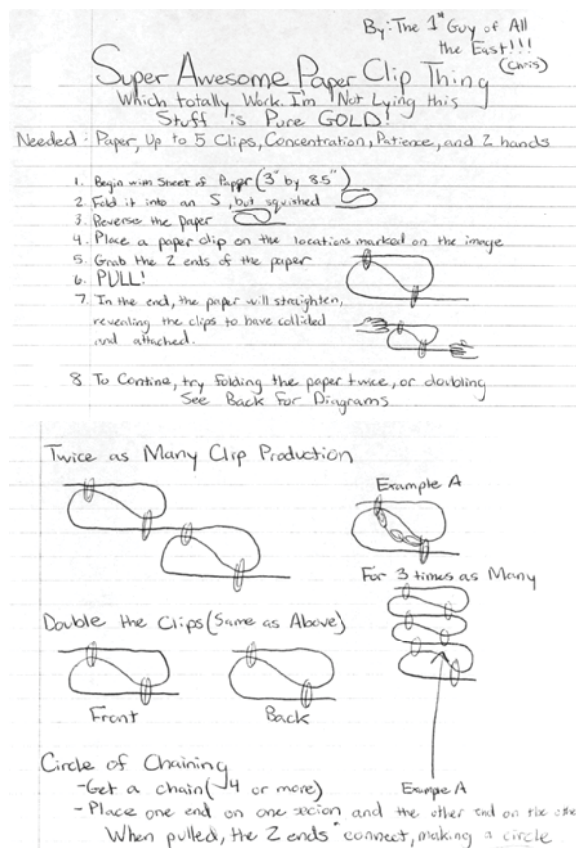 By: The 1st Guy of All
the East!!!
(Chris)
Super Awesome Paper Clip Thing
Which totally Work. I'm Not Lying this
Stuff is Pure GOLD!
Needed: Paper, Up to 5 Clips, Concentration, Patience, and 2 hands
1. Begin with Sheet of Paper (3" by 8.5")
2. Fold it into an S, but squished
3. Reverse the paper
4. Place a paper clip on the locations marked on the image
5. Grab the 2 ends of the paper
6. PULL!
7. In the end, the paper will straighten,
revealing the clips to have collided
and attached.
8. To Contine, try folding the paper twice, or doubling
See Back For Diagrams
Twice as Many Clip Production
Example A
For 3 times as Many
Double the Clips (Same as Above)
Front
Back
Circle of Chaining
-Get a chain (4 or more)
Example A
-Place one end on one secion and the other end on the othe
When pulled, the 2 ends connect, making a circle